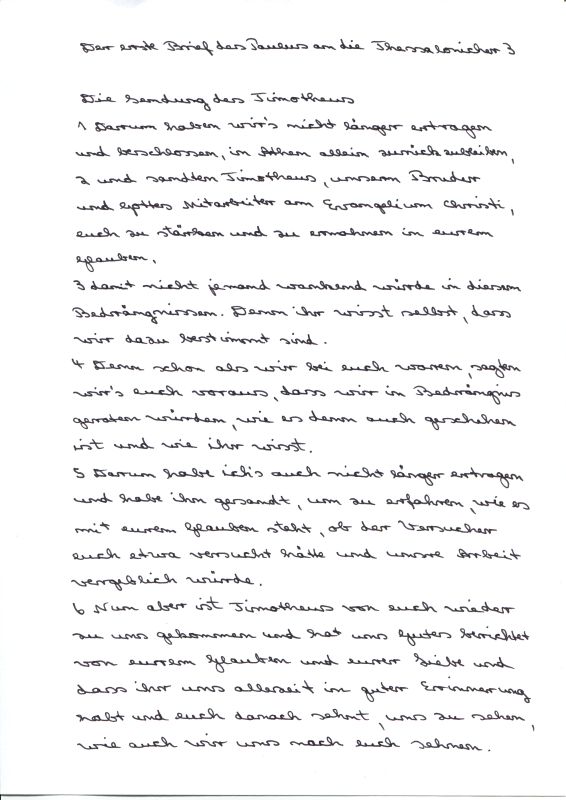 Der erste Brief des Paulus an die Thessalonicher 3
Die Sendung des Timotheus
1 Darum haben wir's nicht länger ertragen
und beschlossen, in Athen allein zurückzubleiben,
2 und sandten Timotheus, unsern Bruder
und Gottes Mitarbeiter am Evangelium Christi,
euch zu stärken und zu ermahnen in eurem
Glauben,
3 damit nicht jemand wankend würde in diesen
Bedrängnissen. Denn ihr wisst selbst, dass
wir dazu bestimmt sind.
4 Denn schon als wir bei euch waren, sagten
wir's euch voraus, dass wir in Bedrängnis
geraten würden, wie es denn auch geschehen
ist und wie ihr wisst.
5 Darum habe ich's auch nicht länger ertragen
und habe ihn gesandt, um zu erfahren, wie es
mit eurem Glauben steht, ob der Versucher
euch etwa versucht hätte und unsre Arbeit
vergeblich würde.
6 Nun aber ist Timotheus von euch wieder
zu uns gekommen und hat uns Gutes berichtet
von eurem Glauben und eurer Liebe und
dass ihr uns allezeit in guter Erinnerung
habt und euch danach sehnt, uns zu sehen,
wie auch wir uns nach euch sehnen.